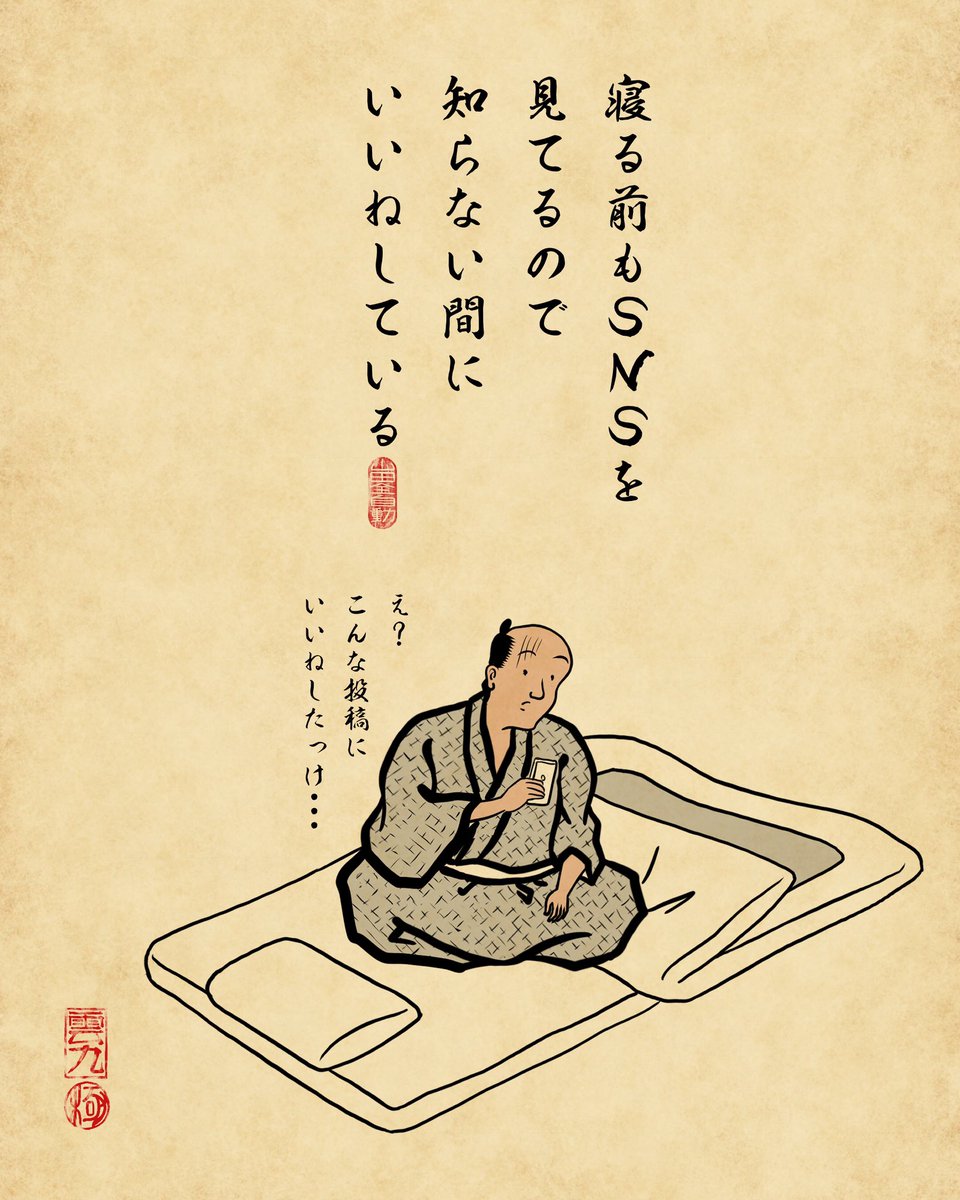 寝る前もSNSを
見てるので
知らない間に
いいねしている
え?
こんな投稿に
いいねしたっけ・・・
雲九
極